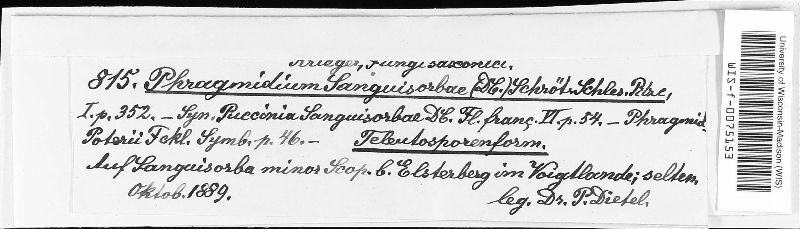 Krieger, Fungi saxonici.
815. Phragmidium Sanguisorbae (DC.) Schröt. Schles. Pilze,
I. p. 352. — Syn. Puccinia Sanguisorbae DC. Fl. franç. VI p. 54. — Phragmid.
Poterii Fckl. Symb. p. 46. — Teleutosporenform.
Auf Sanguisorba minor Scop. b. Elsterberg im Voigtlande; selten.
Oktob. 1889.
leg. Dr. P. Dietel.
University of Wisconsin-Madison (WIS)
WIS-f-0075153